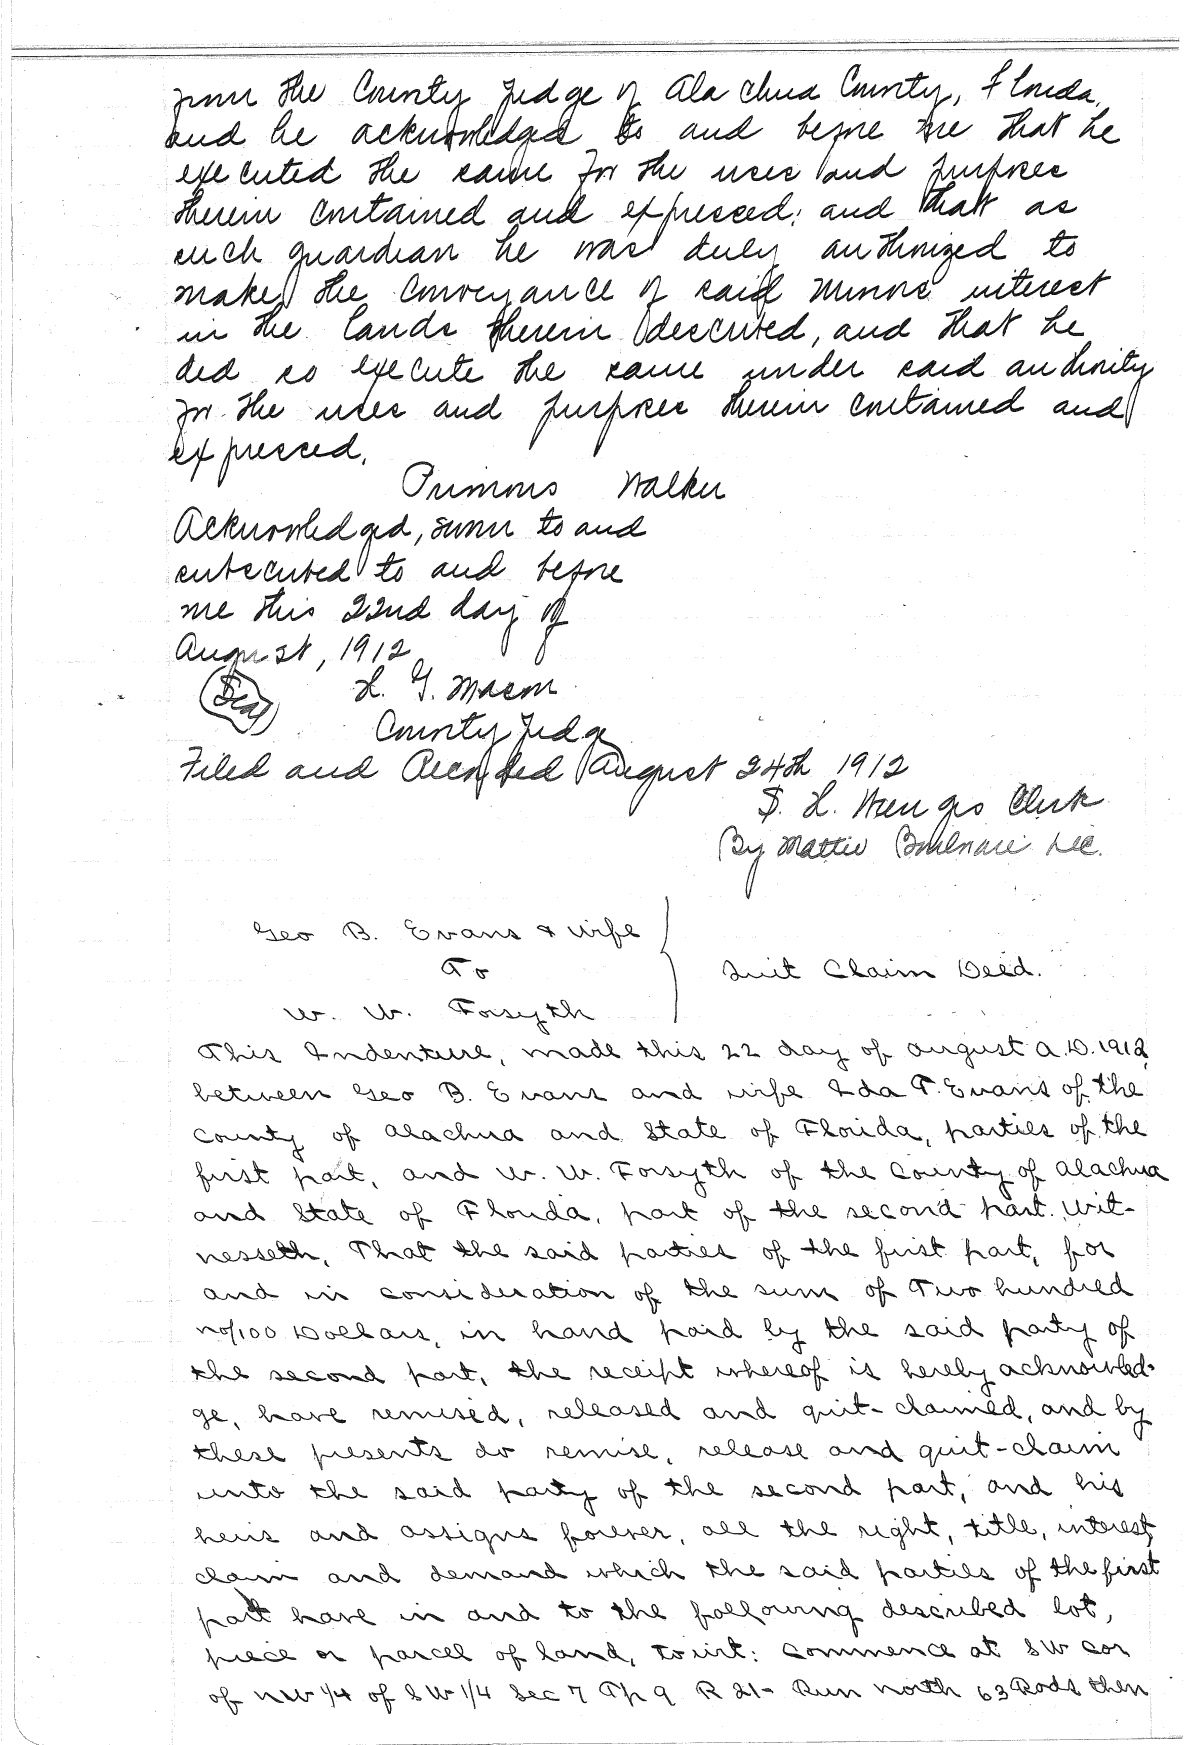 from the County Judge of Alachua County, Florida,
and he acknowledged to and before me that he
executed the same for the uses and purposes
therein contained and expressed; and that as
such guardian he was duly authorized to
make the conveyance of said minors interest
in the lands therein described, and that he
did so execute the same under said authority
for the uses and purposes therein contained and
expressed.
Primous Walker
Acknowledged, sworn to and
subscribed to and before
me this 22nd day of
August, 1912
Seal H. G. Mason
County Judge
Filed and Recorded August 24th 1912
S. H. Wienges Clerk
By Mattie D.C.
Geo B. Evans & wife
To
Quit Claim Deed.
W. W. Forsyth
This Indenture, made this 22 day of august A.D. 1912
between Geo B. Evans and wife Ida F. Evans of the
County of Alachua and State of Florida, parties of the
first part, and W. W. Forsyth of the County of Alachua
and State of Florida, part of the second part. Wit-
nesseth, That the said parties of the first part, for
and in consideration of the sum of Two hundred
no/100 Dollars, in hand paid by the said party of
the second part, the receipt whereof is hereby acknowled-
ge, have remised, released and quit-claimed, and by
these presents do remise, release and quit-claim
unto the said party of the second part, and his
heirs and assigns forever, all the right, title, interest,
claim and demand which the said parties of the first
part have in and to the following described lot,
piece or parcel of land, towit: Commence at SW cor
of NW 1/4 of SW 1/4 Sec 7 Tp 9 R 21- Run north 63 Rods then